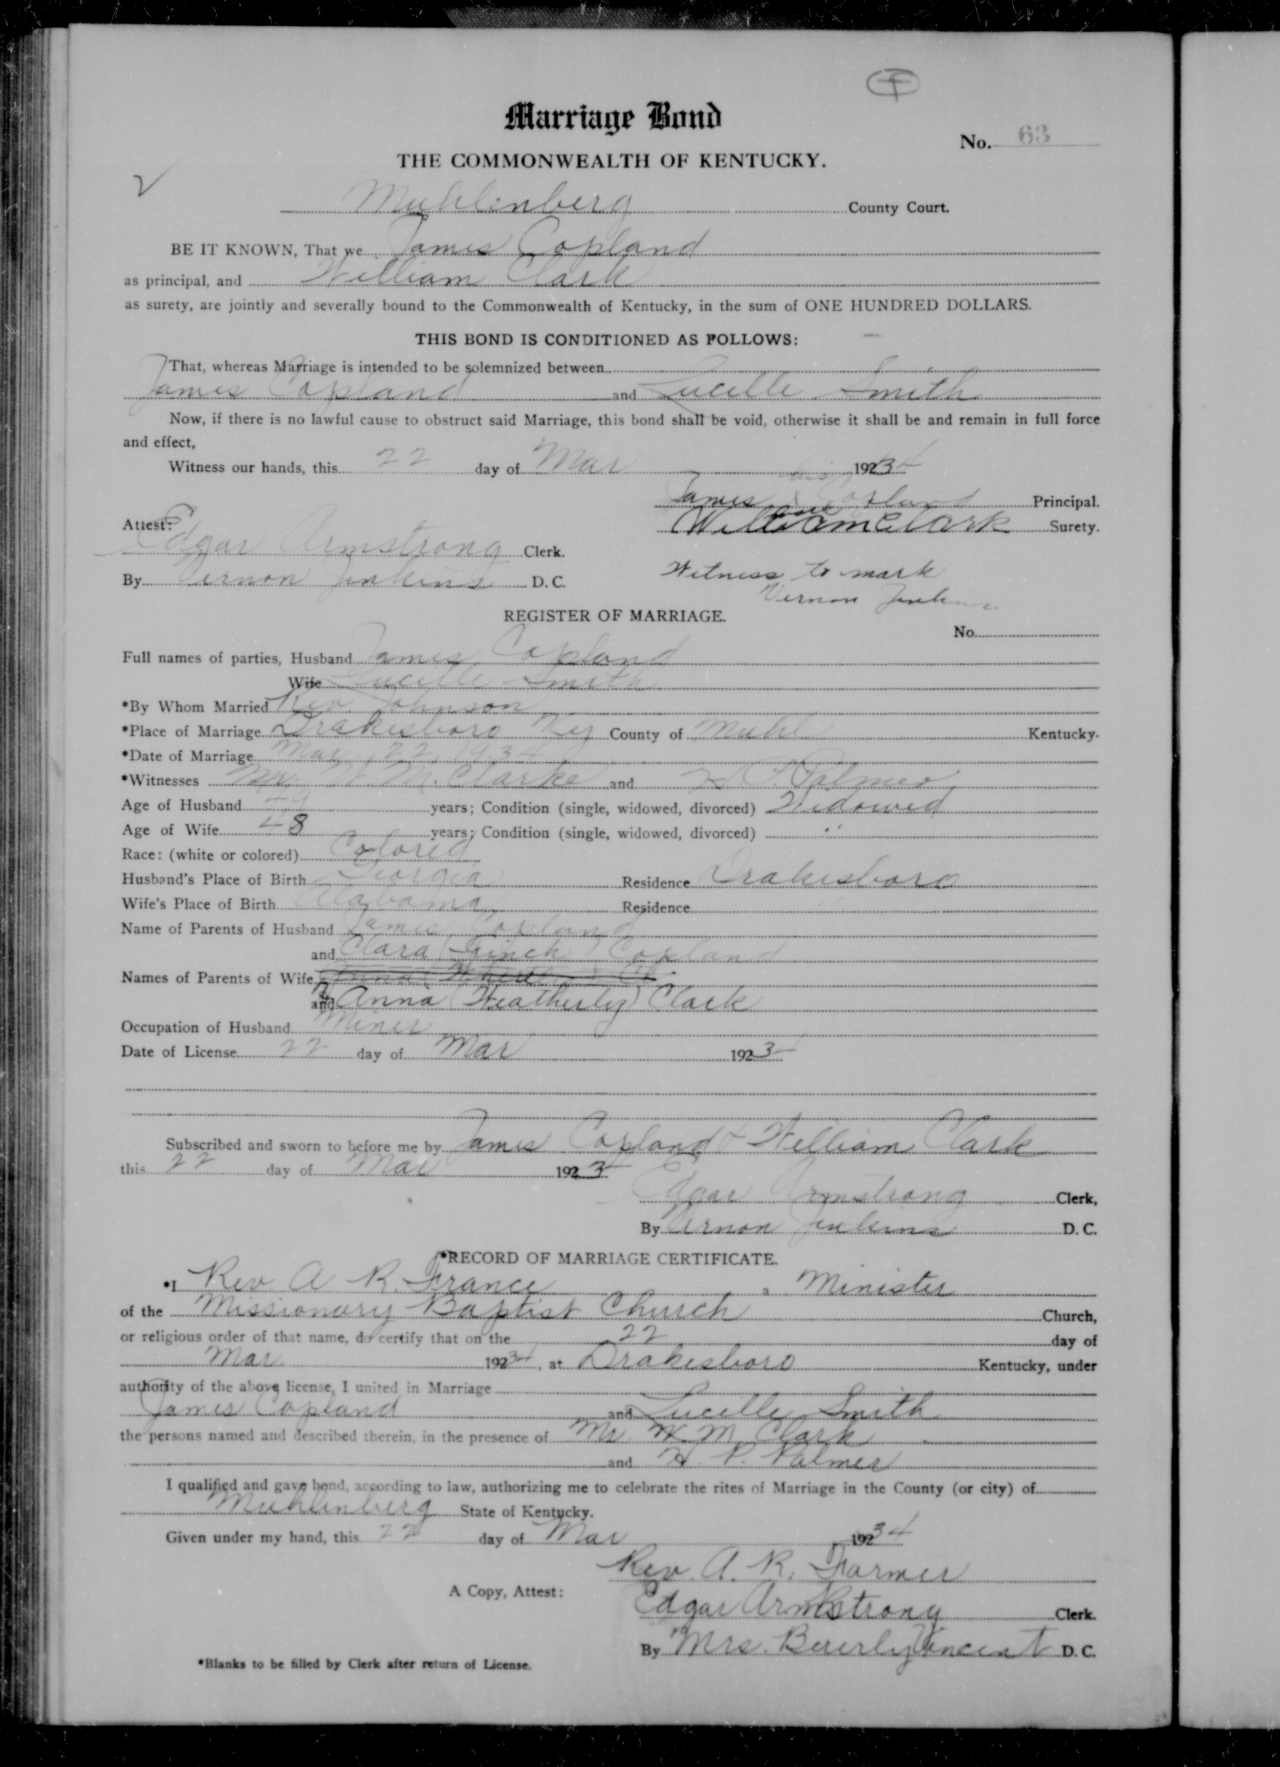 Marriage Bond
No. 63
THE COMMONWEALTH OF KENTUCKY.
Muhlenberg County Court.
BE IT KNOWN, That we James Copland
as principal, and William Clark
as surety, are jointly and severally bound to the Commonwealth of Kentucky, in the sum of ONE HUNDRED DOLLARS.
THIS BOND IS CONDITIONED AS FOLLOWS:
That, whereas Marriage is intended to be solemnized between
James Copland and Lucille Smith
Now, if there is no lawful cause to obstruct said Marriage, this bond shall be void, otherwise it shall be and remain in full force
and effect,
Witness our hands, this 22 day of Mar 1934
his
James x Copland Principal.
Attest: William Clark Surety.
Edgar Armstrong Clerk.
By Vernon Jenkins D. C.
Witness to mark
Vernon Jenkins
REGISTER OF MARRIAGE.
No.
Full names of parties, Husband James Copland
Wife Lucille Smith
*By Whom Married Rev Johnson
*Place of Marriage Drakesboro Ky County of Muhl Kentucky.
*Date of Marriage Mar 22 1934
*Witnesses Mr. W. M. Clarke and H. P. Palmer
Age of Husband 49 years; Condition (single, widowed, divorced) Widowed
Age of Wife 48 years; Condition (single, widowed, divorced) "
Race: (white or colored) Colored
Husband's Place of Birth Georgia Residence Drakesboro
Wife's Place of Birth Alabama Residence "
Name of Parents of Husband James Copland
and Clara Copland
Names of Parents of Wife
and Anna (Weatherly) Clark
Occupation of Husband Miner
Date of License 22 day of Mar 1934
Subscribed and sworn to before me by James Copland & William Clark
this 22 day of Mar 1934
Edgar Armstrong Clerk,
By Vernon Jenkins D. C.
*RECORD OF MARRIAGE CERTIFICATE.
*I Rev. A. R. France, a Minister
of the Missionary Baptist Church Church,
or religious order of that name, do certify that on the 22 day of
Mar. 1934, at Drakesboro Kentucky, under
authority of the above license, I united in Marriage
James Copland and Lucille Smith
the persons named and described therein, in the presence of Mr. W. M. Clark
and H. P. Palmer
I qualified and gave bond, according to law, authorizing me to celebrate the rites of Marriage in the County (or city) of
Muhlenberg State of Kentucky.
Given under my hand, this 22 day of Mar 1934
Rev. A. R. Farmer
A Copy, Attest:
Edgar Armstrong Clerk.
By Mrs. Beverly Vincent D. C.
*Blanks to be filled by Clerk after return of License.